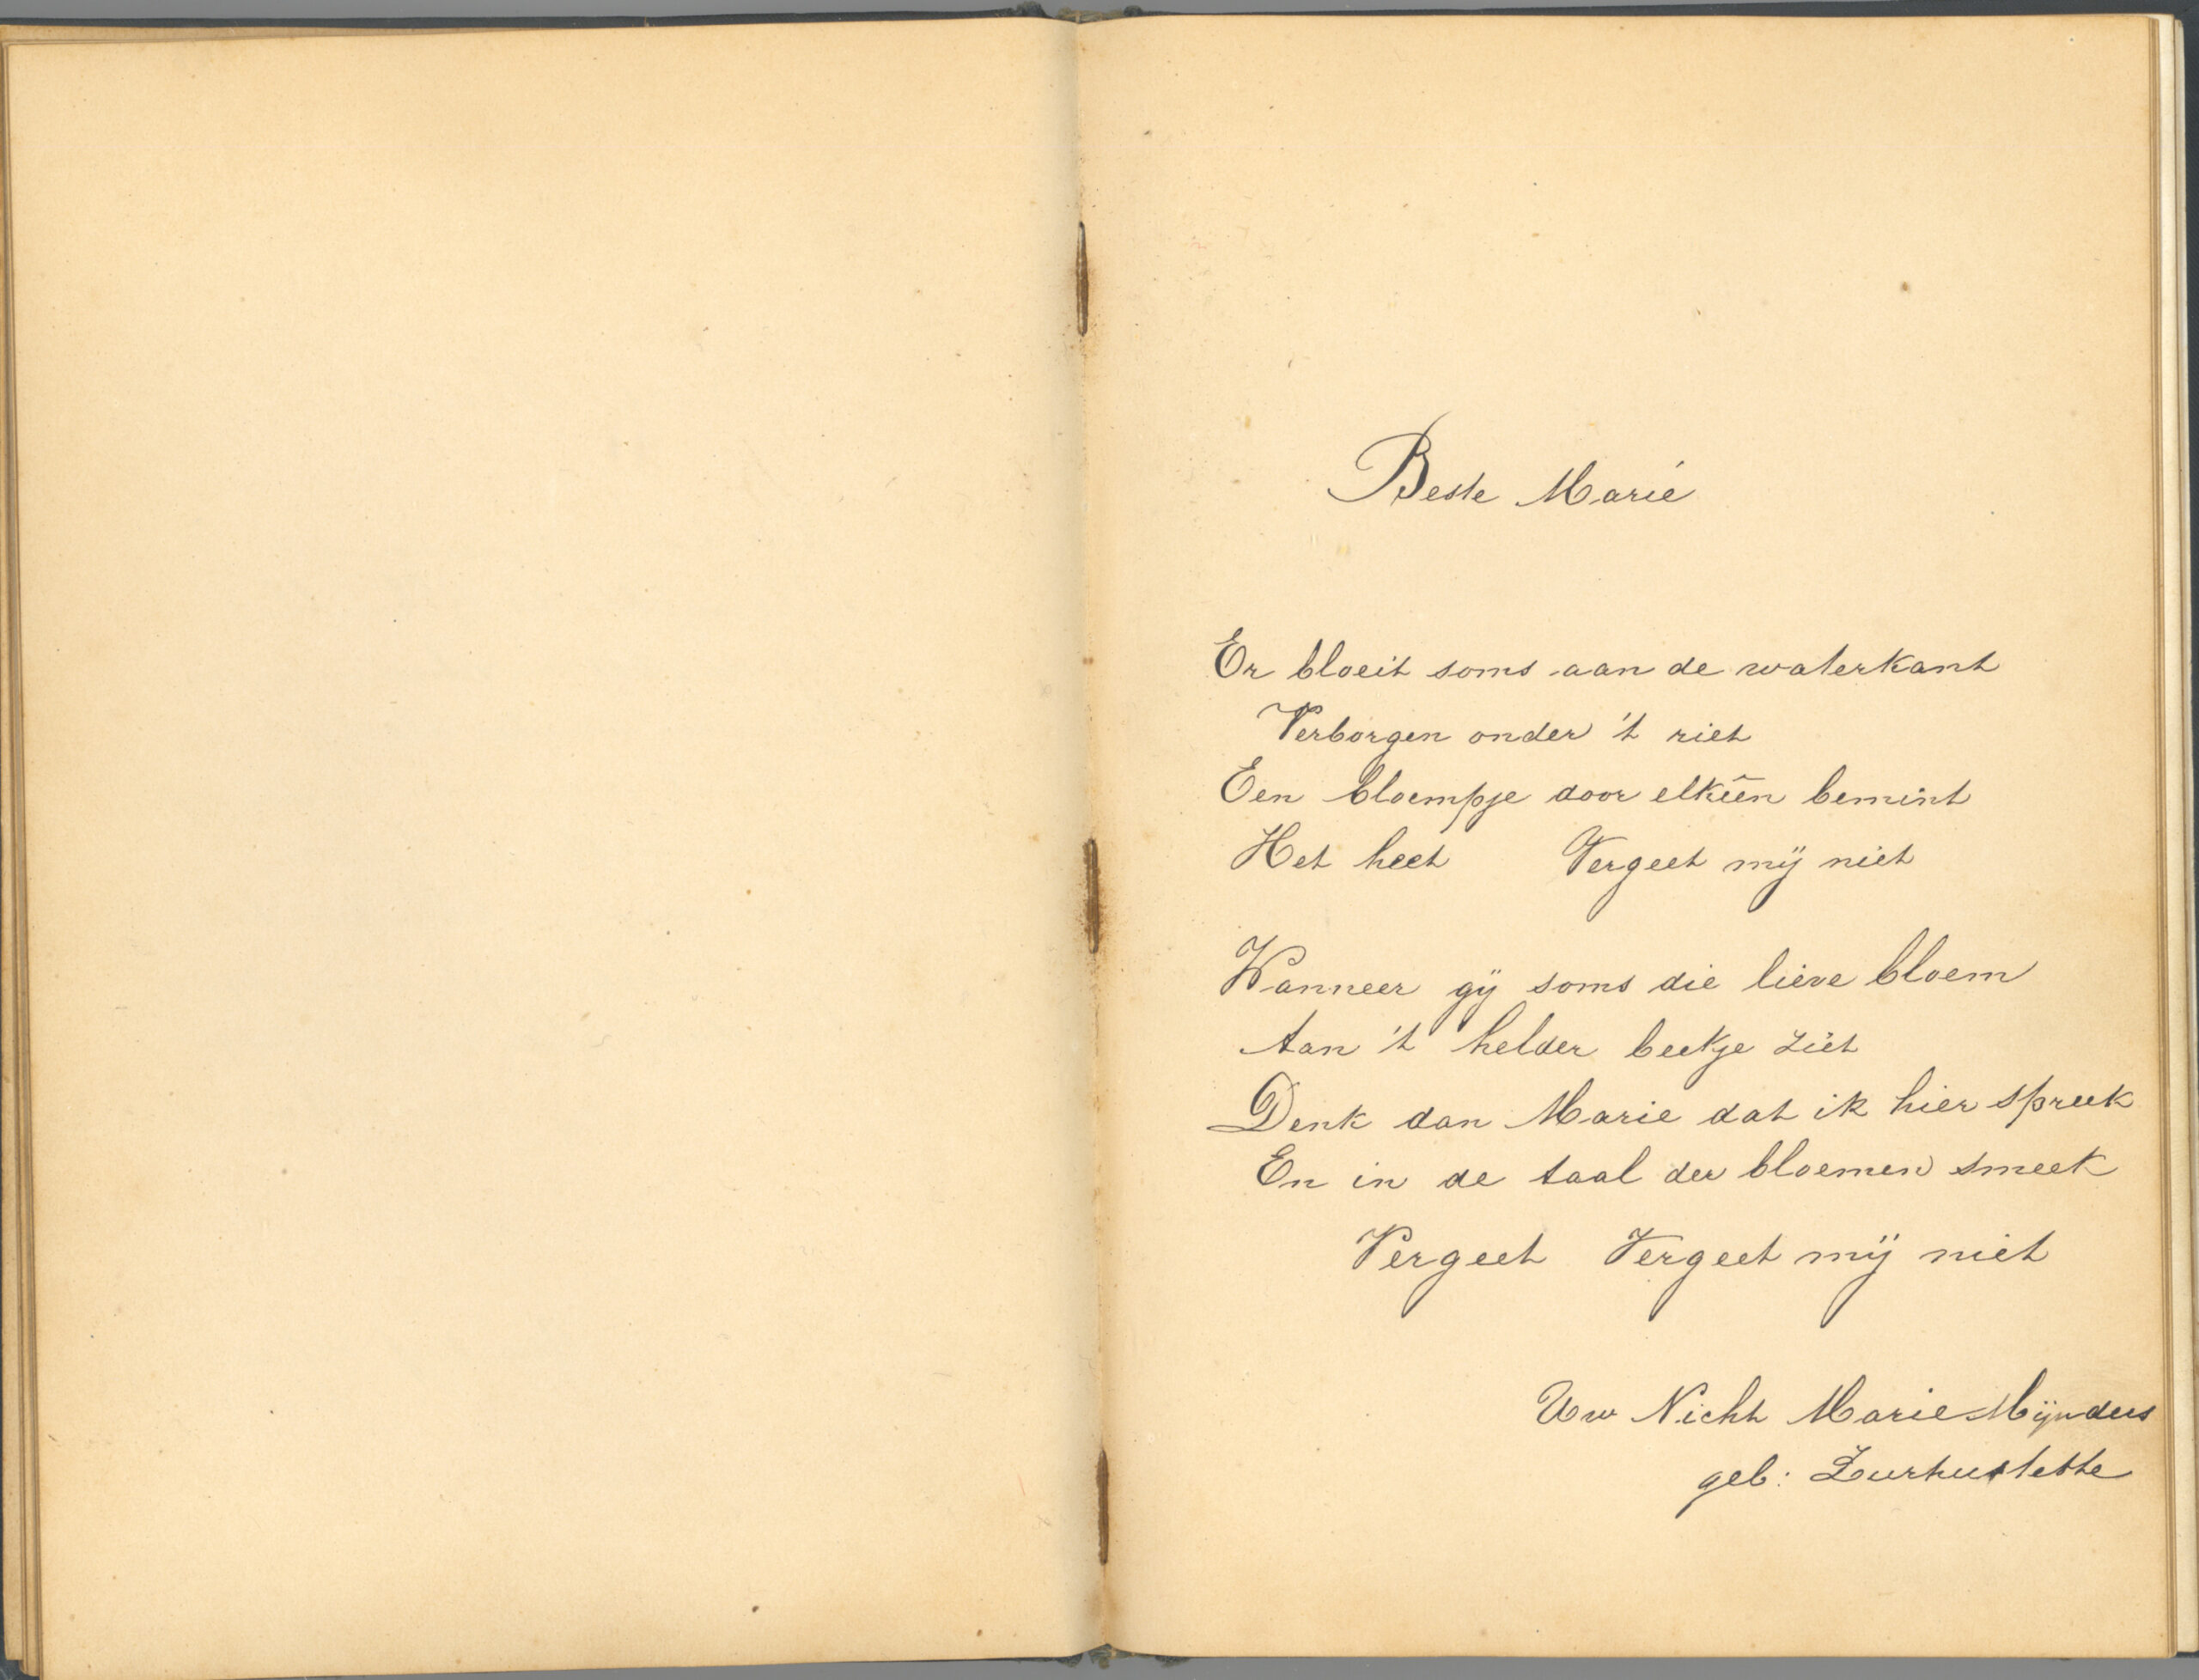 Beste Marie
Er bloeit soms aan de waterkant
Verborgen onder 't riet
Een bloempje door elkeên bemint
Het heet Vergeet mij niet
Wanneer gij soms die lieve bloem
Aan 't helder beekje ziet
Denk dan Marie dat ik hier spreek
En in de taal der bloemen smeek
Vergeet Vergeet mij niet
Uw Nicht Marie Mijnders
geb: